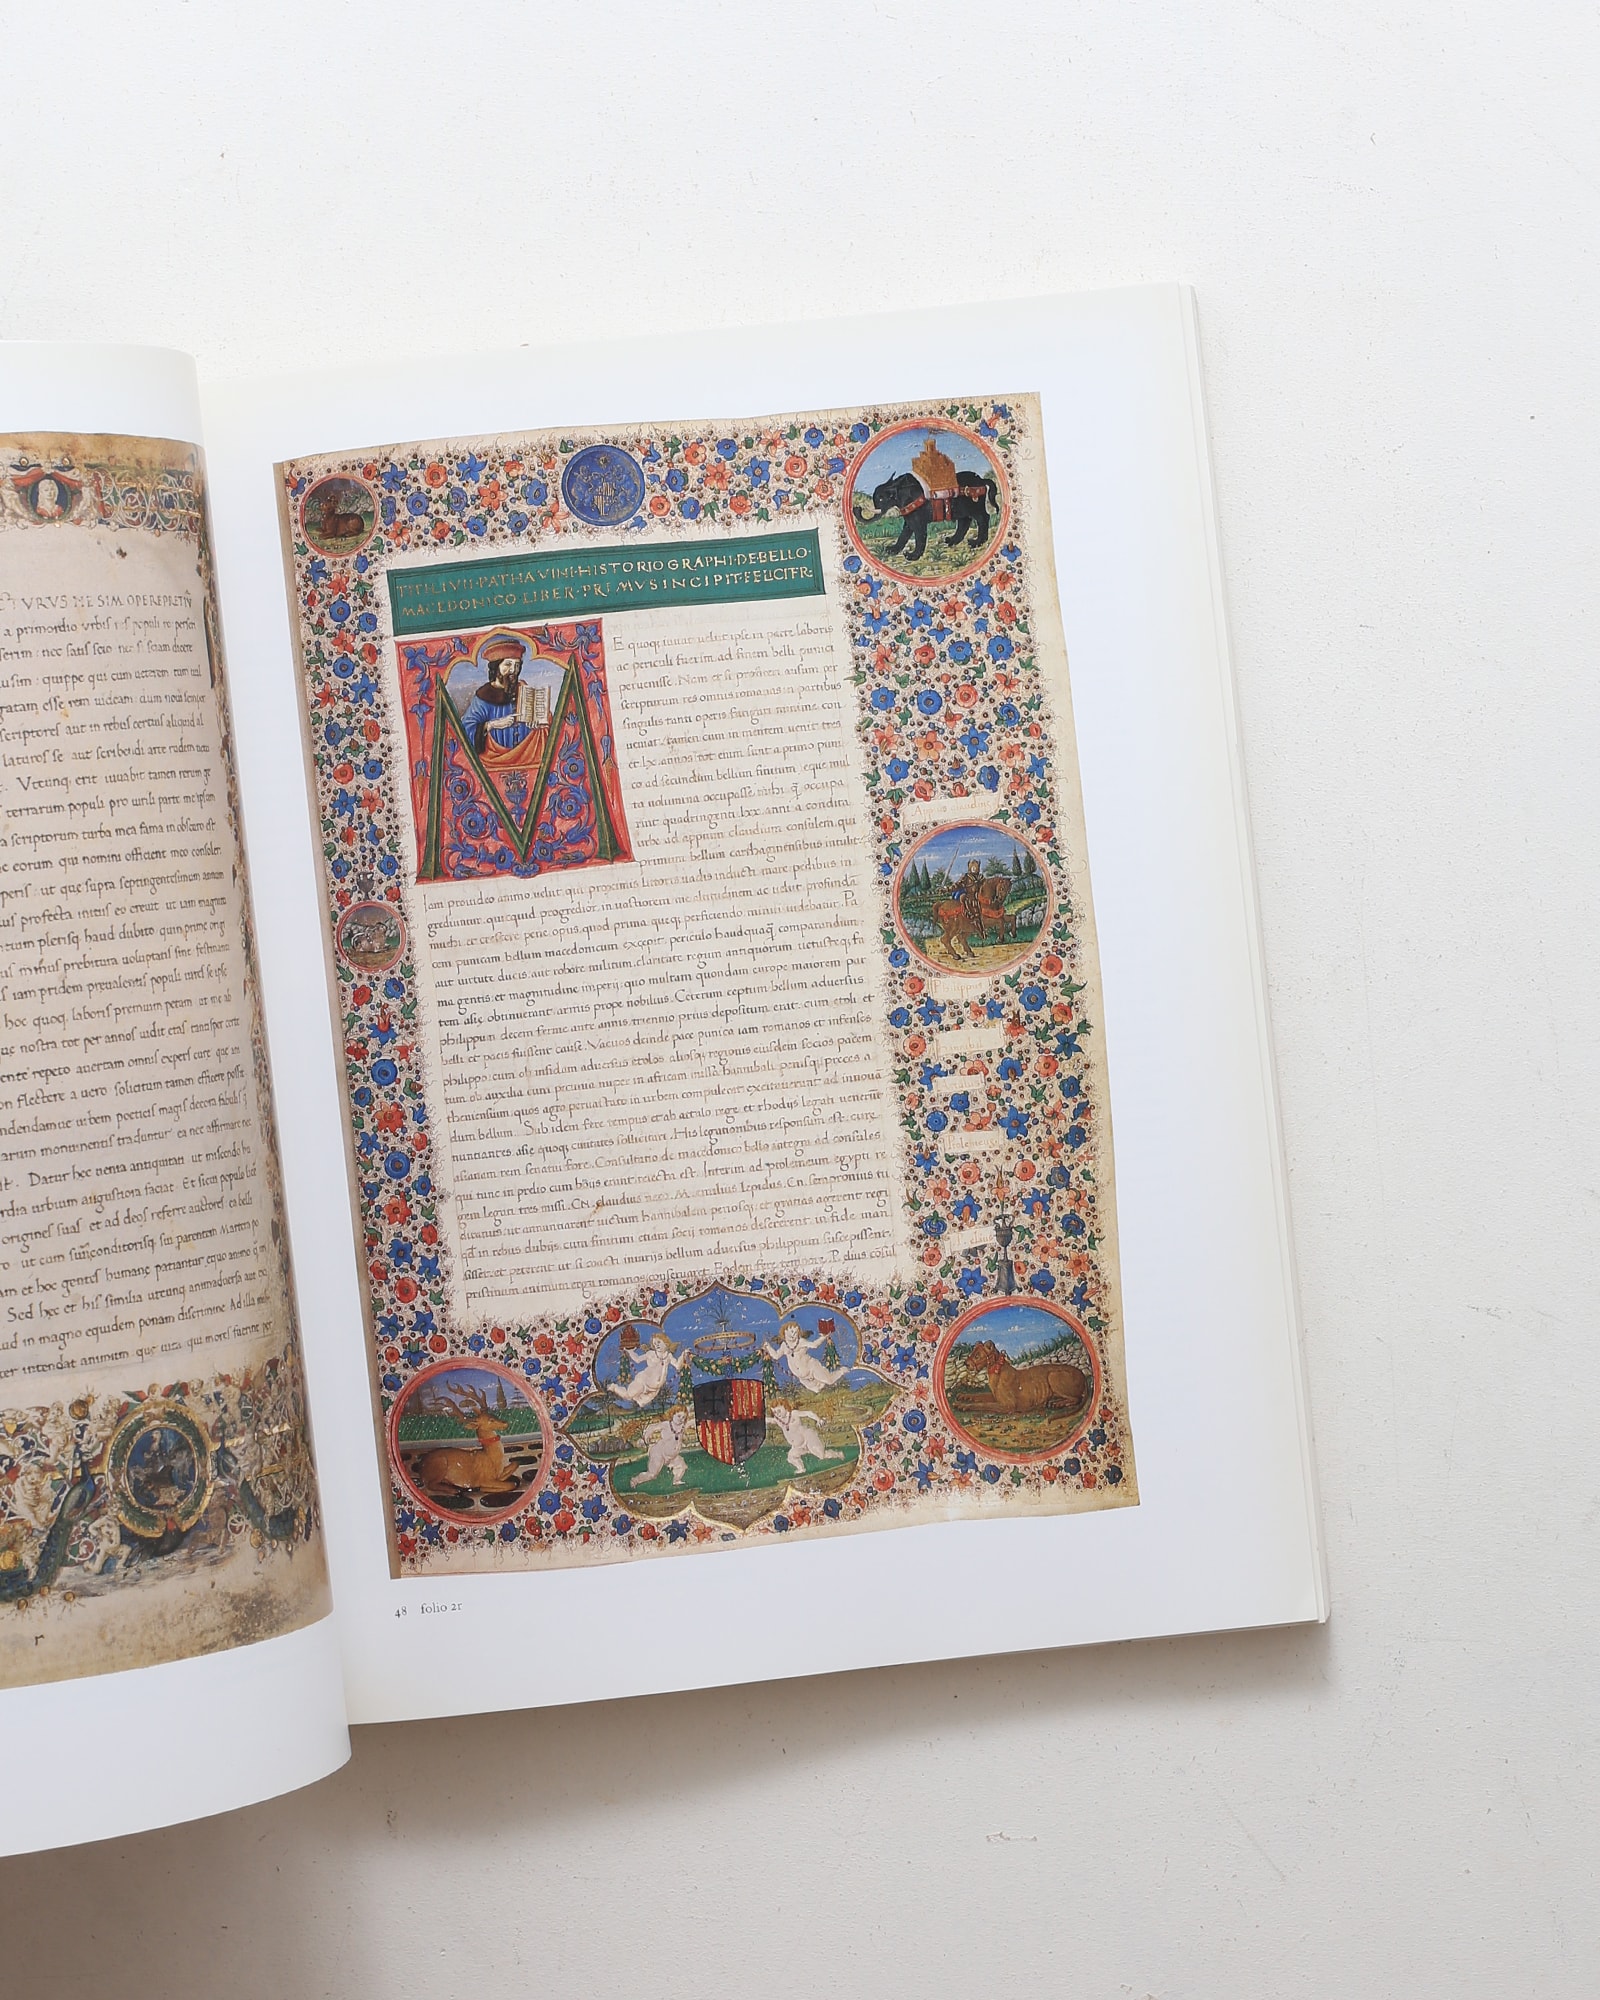 TURUS NE SIM OPERE PRETIŪ
a primordio urbis res populi ro perscri
serim: nec satis scio nec si sciam dicere
ausim: quippe qui cum ueterem tum uul
gatam esse rem uideam: dum noui semper
scriptores aut in rebus certius aliquid al
laturos se aut scribendi arte rudem
Vtcunq; erit iuuabit tamen rerum ge
terrarum populi pro uirili parte me ipsum
scriptorum turba mea fama in obscuro est
eorum qui nomini officient meo consoler
ut que supra septingentesimum annum
profecta initiis eo creuit ut iam magnitu
plerisq; haud dubito quin prime origi
minus prebitura uoluptatis sint festinanti
iam pridem preualentis populi uires se ipse
hoc quoq; laboris premium petam ut me ab
nostra tot per annos uidit etas tantisper certe
repeto auertam omnis expers cure que
flectere a uero sollicitum tamen efficere posset
urbem poeticis magis decora fabulis
monumentis traduntur ea nec affirmare nec
Datur hec uenia antiquitati ut miscendo hu
urbium augustiora faciat. Et si cui populo licere
origines suas et ad deos referre auctores ea belli
ut cum suum conditorisq; sui parentem Martem po
et hoc gentes humane patiantur equo animo
Sed hec et his similia utcunq; animaduersa aut
in magno equidem ponam discrimine Ad illa mihi
intendat animum que uita qui mores fuerint per
r
TITI·LIVII·PATHAVINI·HISTORIOGRAPHI·DE·BELLO·
MACEDONICO·LIBER·PRIMVS INCIPIT·FELICITR·
M
E quoq; iuuat uelut ipse in parte laboris
ac periculi fuerim ad finem belli punici
peruenisse. Nam et si profiteri ausum per
scripturum res omnis romanas in partibus
singulis tanti operis fatigari minime con
ueniat: tamen cum in mentem uenit tres
et lx. annos tot enim sunt a primo puni
co ad secundum bellum finitum eque mul
ta uolumina occupasse mihi q̄ occupa
rint quadringenti lxxx. anni a condita
urbe ad appium claudium consulem, qui
primum bellum carthaginensibus intulit
Iam prouideo animo uelut qui proximis littoris uadis inducti mare pedibus in
grediuntur, quicquid progredior, in uastiorem me altitudinem ac uelut profundū
inuehi, et crescere pene opus, quod prima queq; perficiendo minui uidebatur. Pa
cem punicam bellum macedonicum excepit periculo haudquaq̄ comparandum
aut uirtute ducis, aut robore militum, claritate regum antiquorum uetustaq; fa
ma gentis, et magnitudine imperij, quo multam quondam europe maiorem par
tem asie obtinuerant armis prope nobilius. Ceterum ceptum bellum aduersus
philippum decem ferme ante annis, triennio prius depositum erat, cum etoli et
belli et pacis fuissent cause. Vacuos deinde pace punica iam romanos et infensos
philippo, cum ob infidam aduersus etolos aliosq; regionis eiusdem socios pacem
tum ob auxilia cum pecunia nuper in africam missa hannibali penisq; preces a
theniensium, quos agro peruastato in urbem compulerat excitauerunt ad innouā
dum bellum. Sub idem fere tempus et ab attalo rege et rhodijs legati uenerūt
nuntiantes, asie quoq; ciuitates sollicitari. His legationibus responsum est, cure
asianam rem senatui fore. Consultatio de macedonico bello integra ad consules
qui tunc in predio cum boijs erant reiecta est. Interim ad ptolemeum egypti re
gem legati tres missi. CN. Claudius nero. M. emilius Lepidus. Cn. sempronius tu
ditanus, ut annuntiarent uictum hannibalem penosq;, et gratias agerent regi
qd in rebus dubijs, cum finitimi etiam socij romanos desererent, in fide man
sisset: et peterent ut si coacti iniurijs bellum aduersus philippum suscepissent
pristinum animum erga romanos conseruaret. Eodem fere tempore P. elius cōsul
Philippus
Ptolemeus
48 folio 2r